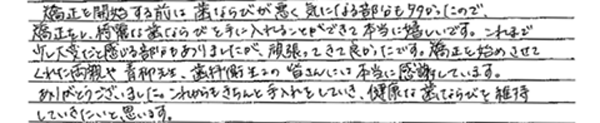 矯正を開始する前は歯ならびが悪く気になる部分も多かったので、
矯正をし、綺麗な歯ならびを手に入れることができて本当に嬉しいです。これまで
少し大変だと感じる部分もありましたが、頑張ってきて良かったです。矯正を始めさせて
くれた両親や青柳先生、歯科衛生士の皆さんには本当に感謝しています。
ありがとうございました。これからもきちんと手入れをしていき、健康な歯ならびを維持
していきたいと思います。